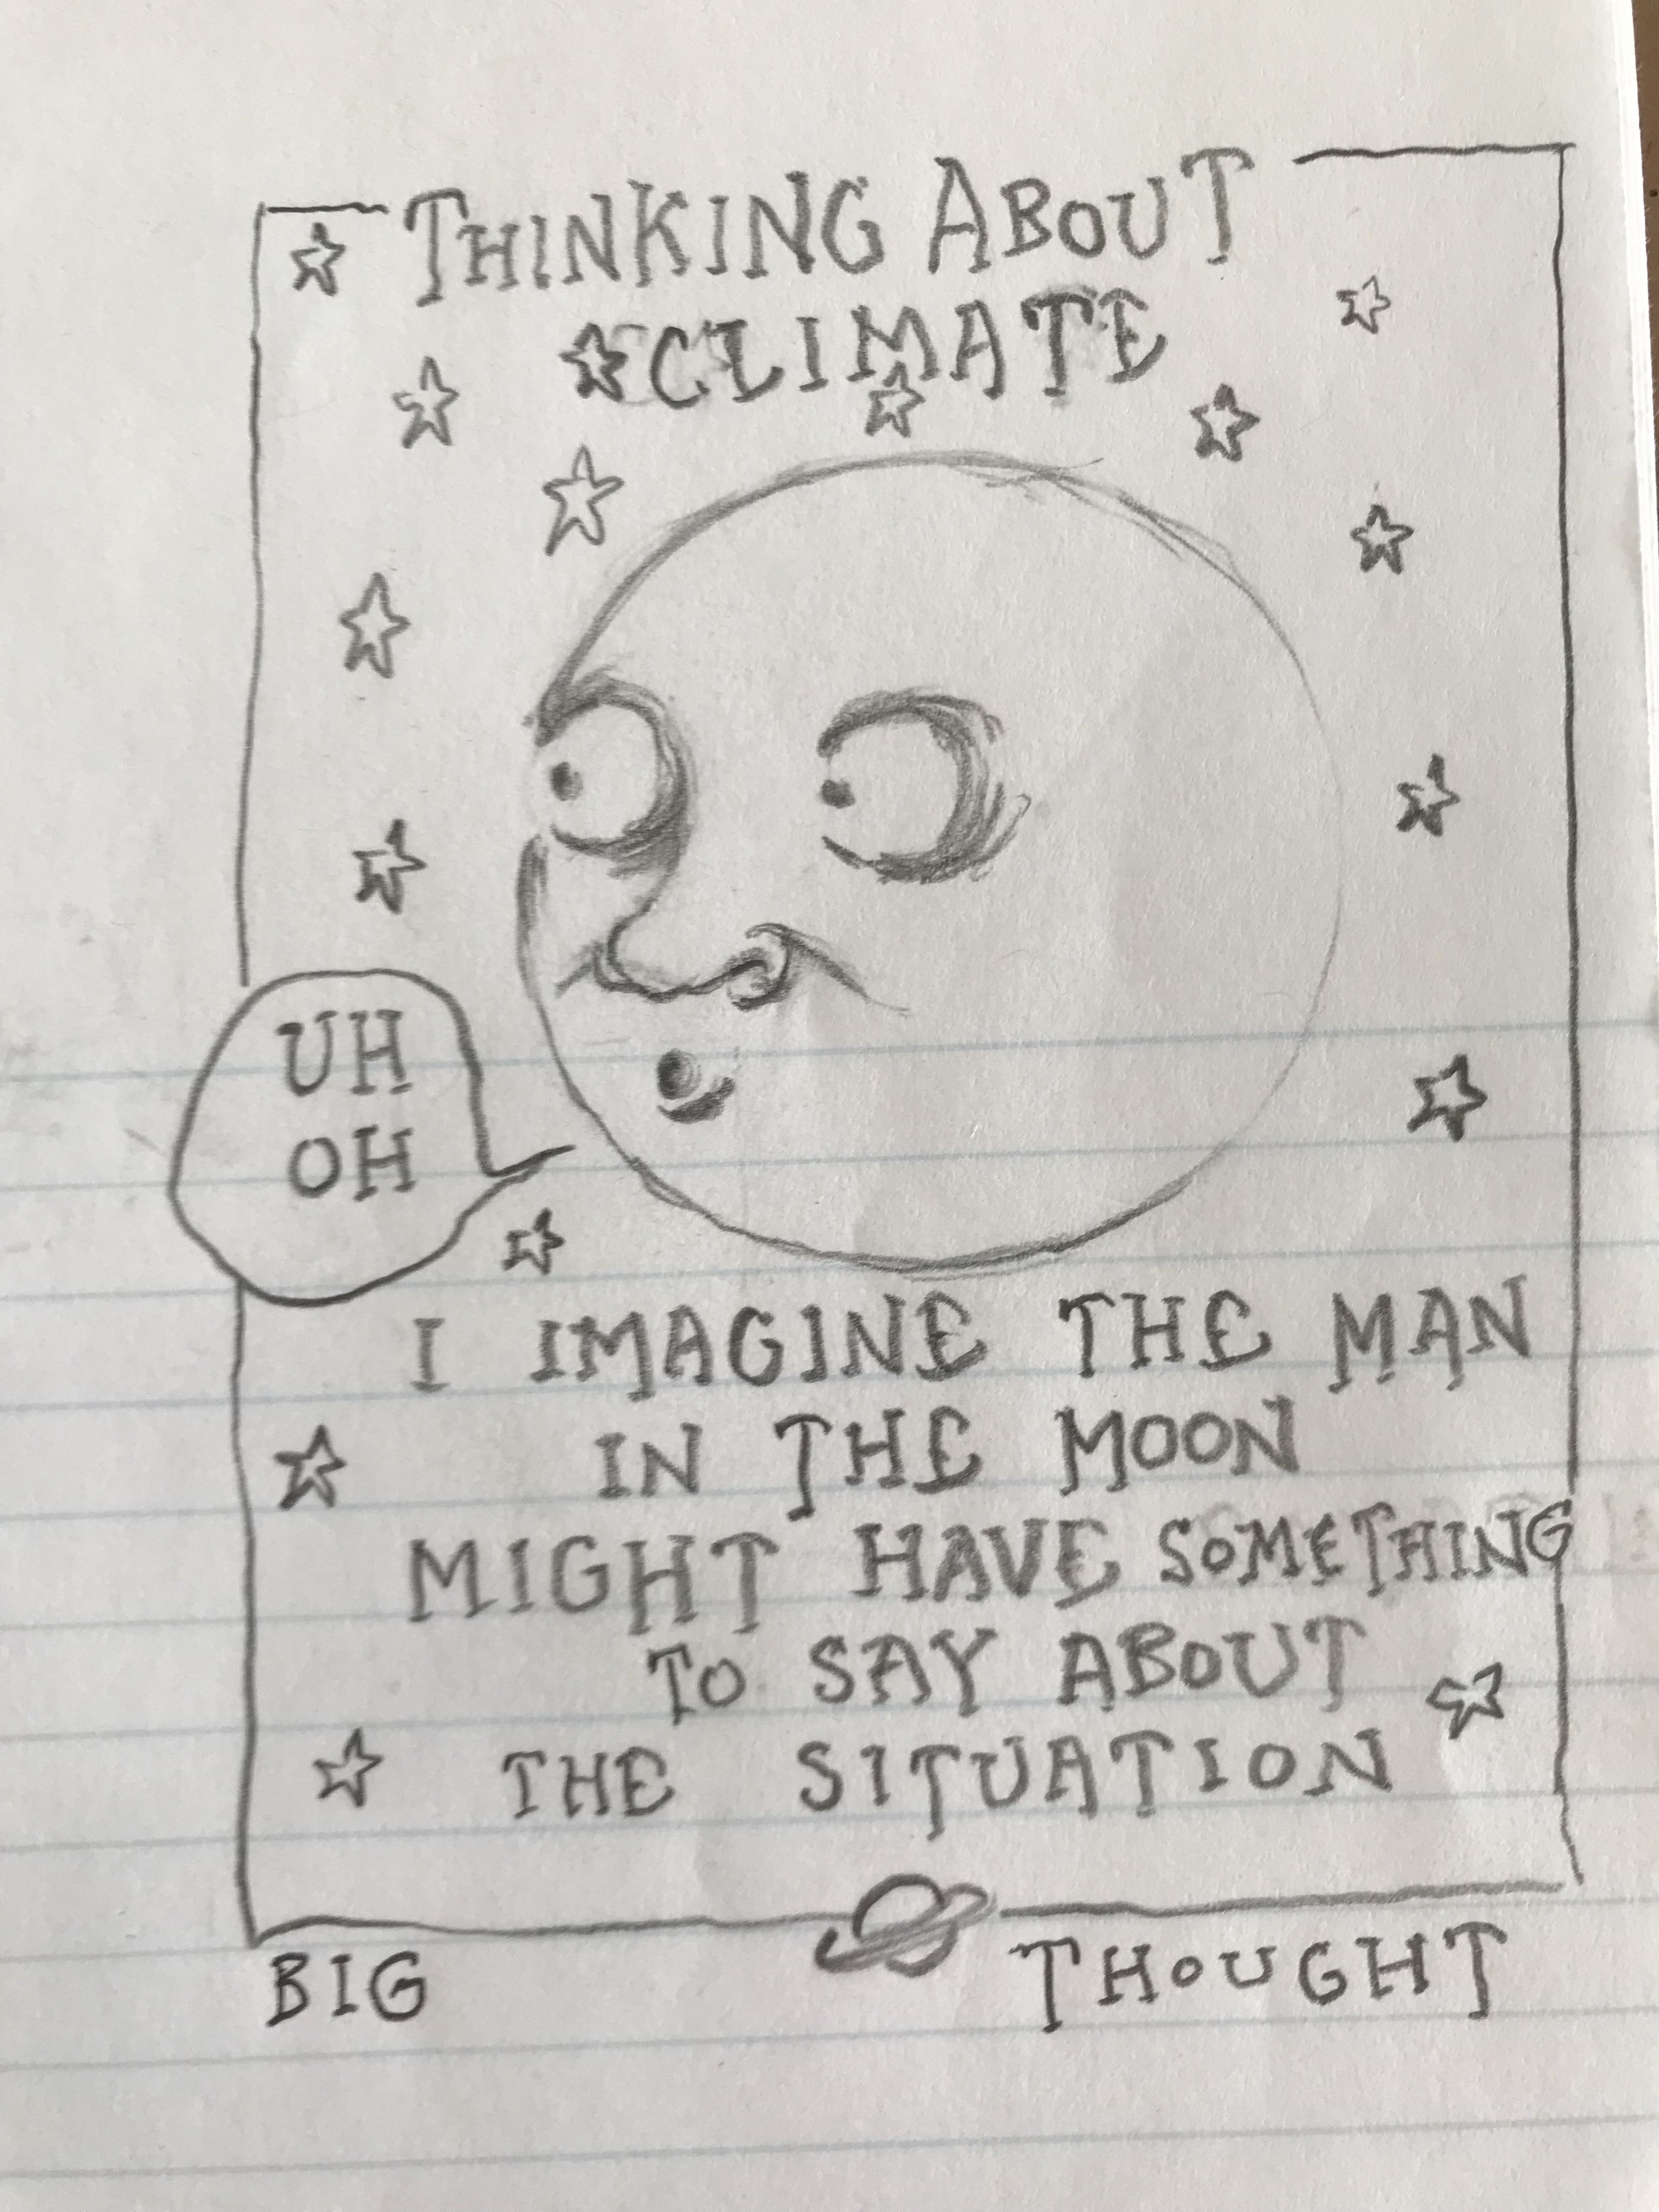 THINKING ABOUT
CLIMATE
UH
OH
I IMAGINE THE MAN
IN THE MOON
MIGHT HAVE SOMETHING
TO SAY ABOUT
THE SITUATION
BIG THOUGHT